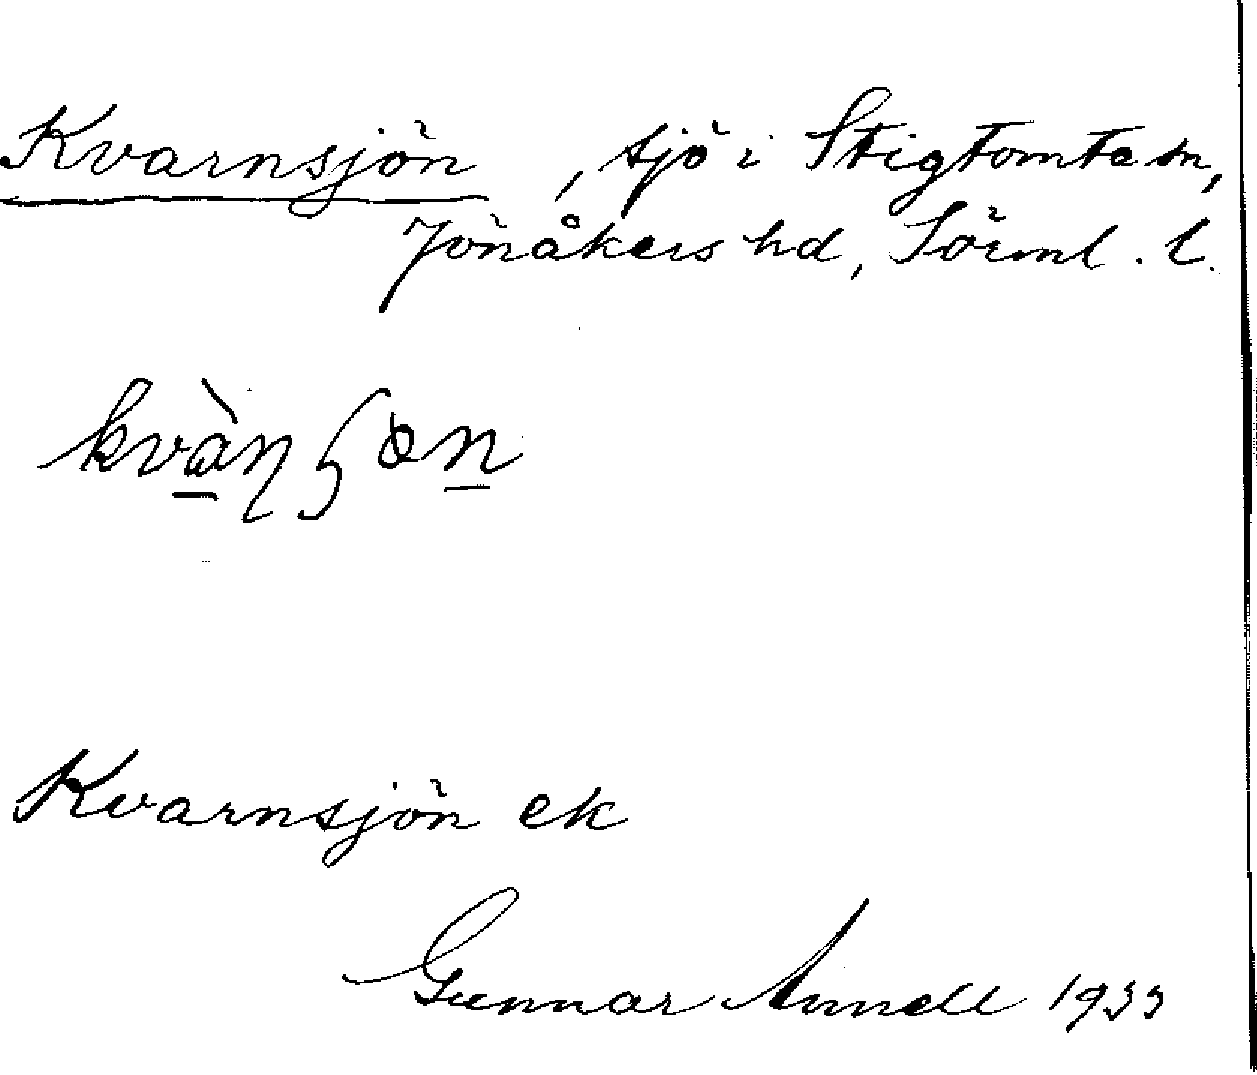 Kvarnsjön, sjö i Stigtomta sn,
Jönåkers hd, Sörml. l.
Kvarnsjön ek
Gunnar Annell 1933